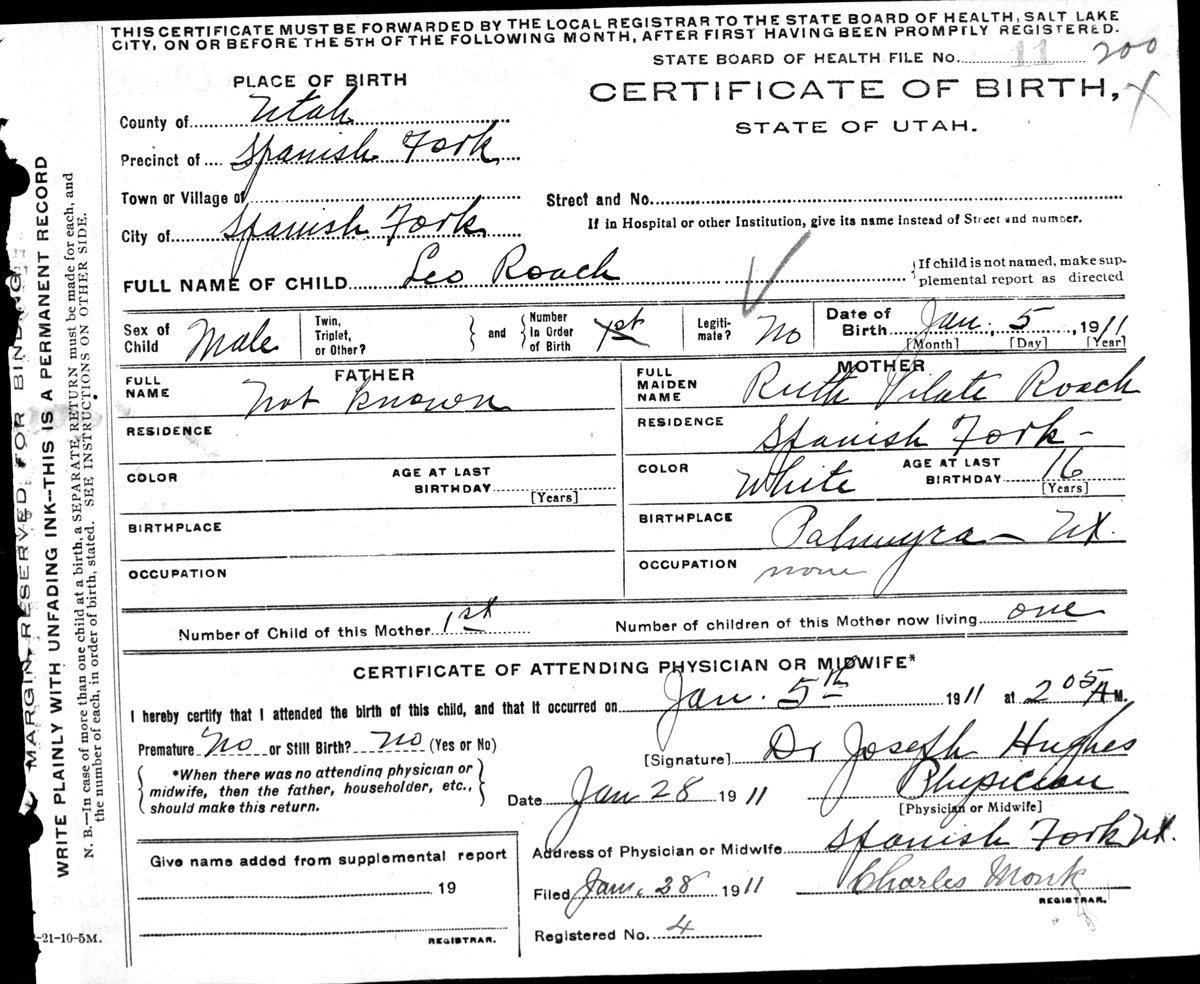 THIS CERTIFICATE MUST BE FORWARDED BY THE LOCAL REGISTRAR TO THE STATE BOARD OF HEALTH, SALT LAKE
CITY, ON OR BEFORE THE 5TH OF THE FOLLOWING MONTH, AFTER FIRST HAVING BEEN PROMPTLY REGISTERED.
STATE BOARD OF HEALTH FILE No. 11 200
PLACE OF BIRTH
CERTIFICATE OF BIRTH, X
STATE OF UTAH.
County of Utah
Precinct of Spanish Fork
Town or Village of
Street and No.
City of Spanish Fork
If in Hospital or other Institution, give its name instead of Street and number.
FULL NAME OF CHILD Leo Roach
If child is not named, make sup-
plemental report as directed
Sex of Child Male
Twin, Triplet, or Other?
and
Number In Order of Birth 1st
Legiti-mate? No
Date of Birth Jan. 5, 1911
[Month] [Day] [Year]
FATHER
FULL NAME Not known
RESIDENCE
COLOR
AGE AT LAST BIRTHDAY [Years]
BIRTHPLACE
OCCUPATION
MOTHER
FULL MAIDEN NAME Ruth Vilate Roach
RESIDENCE Spanish Fork -
COLOR White
AGE AT LAST BIRTHDAY 16 [Years]
BIRTHPLACE Palmyra - Ut.
OCCUPATION none
Number of Child of this Mother 1st
Number of children of this Mother now living one
CERTIFICATE OF ATTENDING PHYSICIAN OR MIDWIFE*
I hereby certify that I attended the birth of this child, and that it occurred on Jan. 5th 1911 at 2 05 A M.
Premature No or Still Birth? No (Yes or No)
[Signature] Dr Joseph Hughes
*When there was no attending physician or
midwife, then the father, householder, etc.,
should make this return.
Date Jan 28 1911
Physician
[Physician or Midwife]
Give name added from supplemental report
19
REGISTRAR.
Address of Physician or Midwife Spanish Fork Ut.
Filed Jan. 28 1911
Charles Monk
REGISTRAR.
Registered No. 4
-21-10-5M.
MARGIN RESERVED FOR BINDING
WRITE PLAINLY WITH UNFADING INK--THIS IS A PERMANENT RECORD
N. B.—In case of more than one child at a birth, a SEPARATE RETURN must be made for each, and
the number of each, in order of birth, stated. SEE INSTRUCTIONS ON OTHER SIDE.